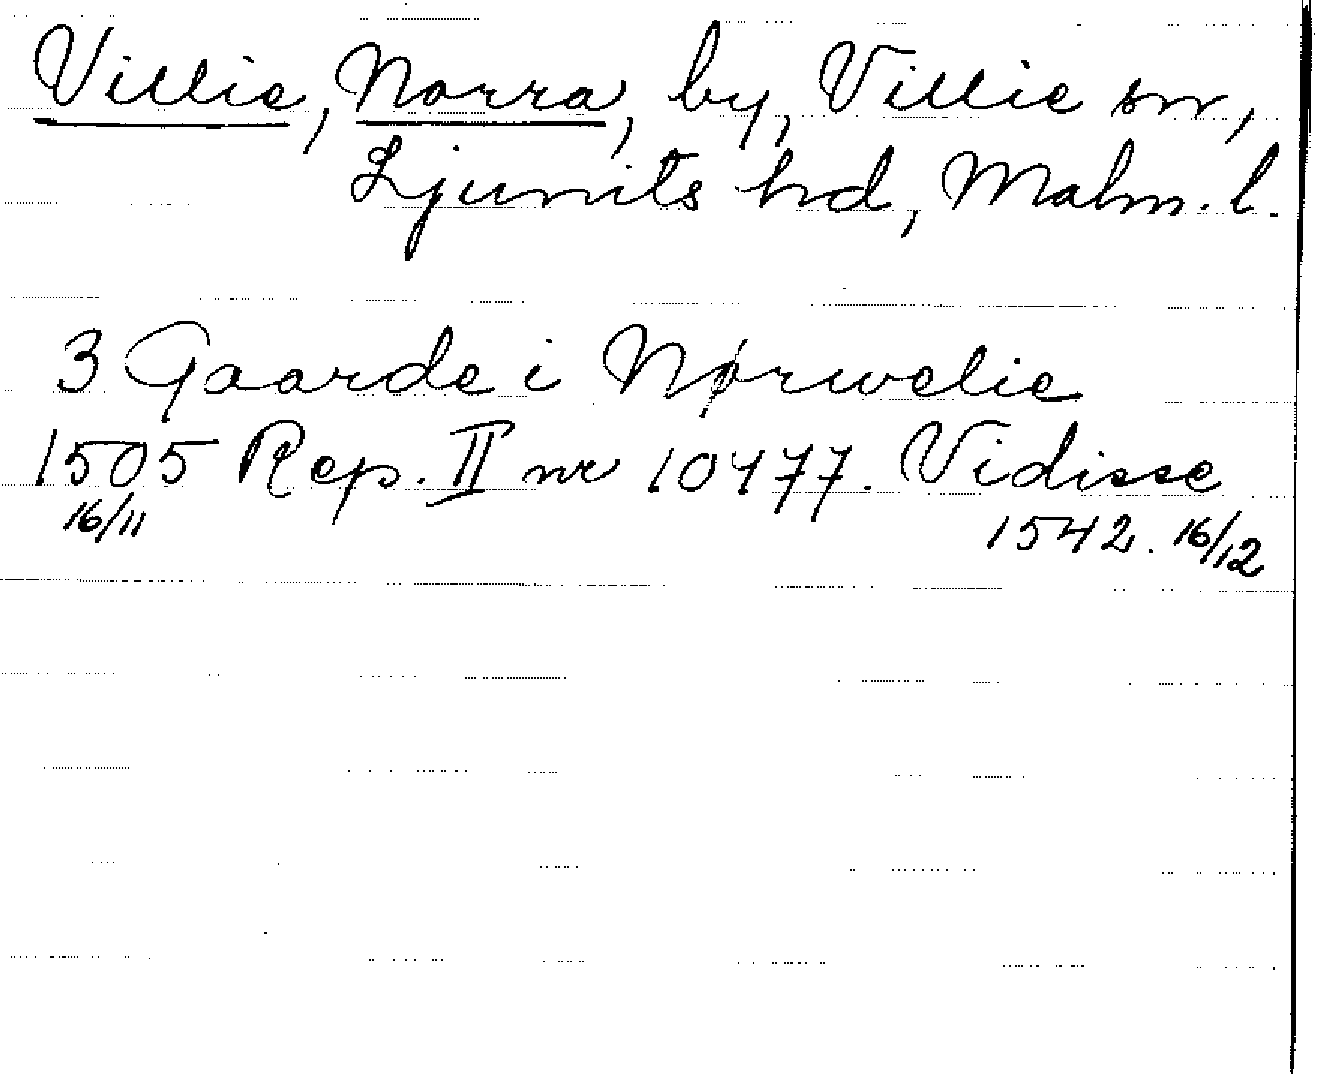 Villie, Norra, by, Villie sn,
Ljunits hd, Malm. l.
3 Gaarde i Nørwelie
1505 Rep. II nr 10477. Vidisse
16/11 1542. 16/12